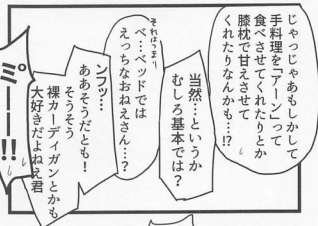 じゃっじゃあもしかして
手料理を「アーン」って
食べさせてくれたりとか
膝枕で甘えさせて
くれたりなんかも…!?
当然…というか
むしろ基本では?
それはつまり
べ…ベッドでは
えっちなおねえさん…?
ンフッ…
ああそうだとも!
そうそう
裸カーディガンとかも
大好きだよねえ君
ミ゛ーーー!!